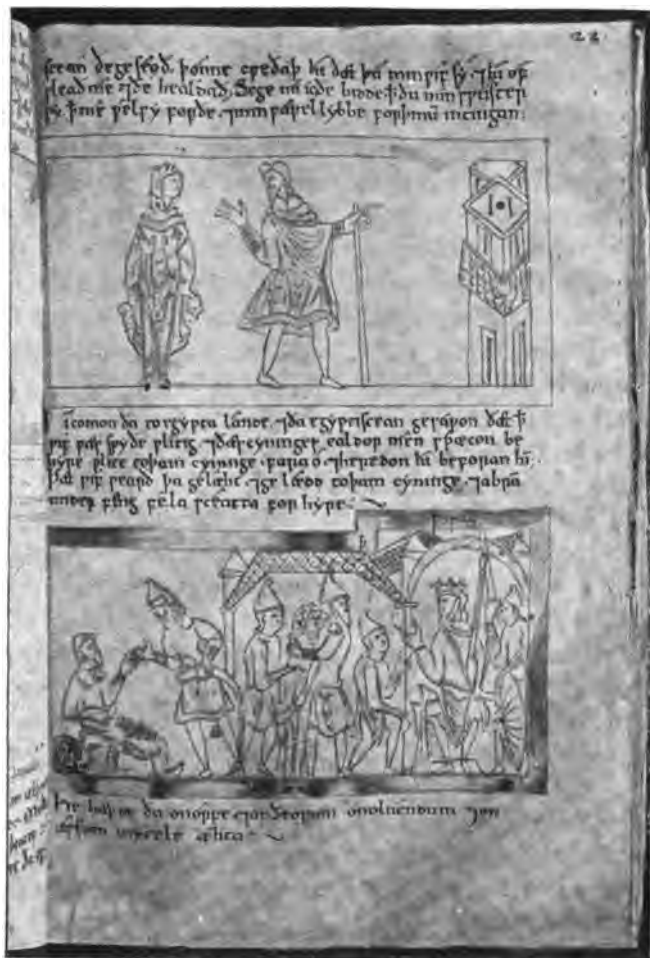 22
scean ðe geseoð. þonne cweðaþ hi ðæt þu min wif sy. ⁊ hi of
sleað me ⁊ ðe healdað. Sege nu ic ðe bidde ꝥ ðu min swuster
sy ꝥ me wel sy for ðe. ⁊ min sawel lybbe for þinum intingan:
comon ða to egypta lande. ⁊ ða egyptiscean gesawon ðæt ꝥ
wif wæs swyðe wlitig ⁊ ðæs cyninges ealdor men spræcon be
hyre wlite to þam cyninge. farao. ⁊ heredon hi beforan hi.
þæt wif wearð þa gelæht. ⁊ ge læd to þam cyninge. ⁊ abrā
under feng fela sceatta for hyre:
He hæfde ða on orfe ⁊ on ðeowum on olfendum ⁊ on
assum mycele æhta: